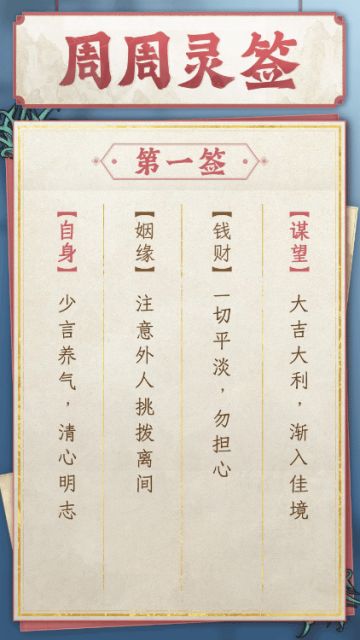 周周灵签
第一签
【谋望】
大吉大利，渐入佳境
【钱财】
一切平淡，勿担心
【姻缘】
注意外人挑拨离间
【自身】
少言养气，清心明志